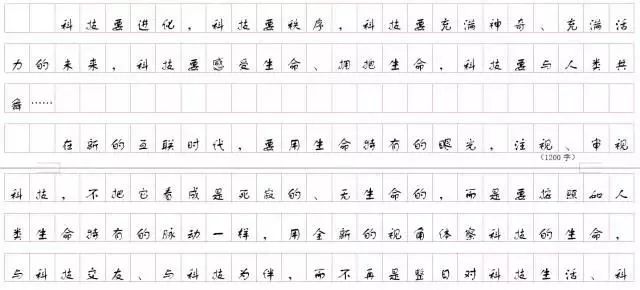 科技要进化，科技要秩序，科技要充满神奇、充满活
力的未来，科技要感受生命、拥抱生命，科技要与人类共
舞……
在新的互联时代，要用生命特有的眼光，注视、审视
（1200字）
科技，不把它看成是死寂的、无生命的，而是要按照如人
类生命特有的脉动一样，用全新的视角体察科技的生命，
与科技交友、与科技为伴，而不再是整日对科技生活、科